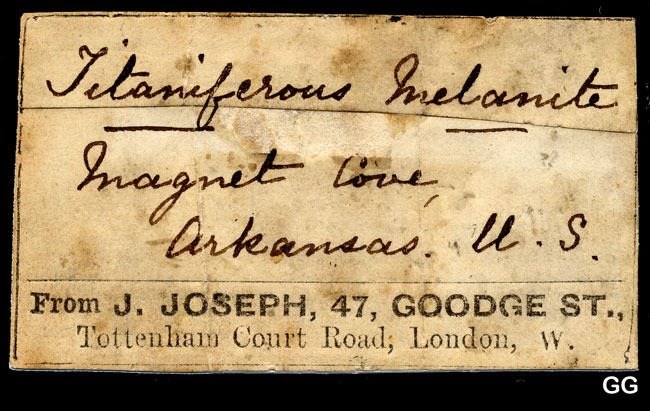 Titaniferous Melanite
Magnet Cove,
Arkansas. U. S.
From J. JOSEPH, 47, GOODGE ST.,
Tottenham Court Road, London, W.
GG